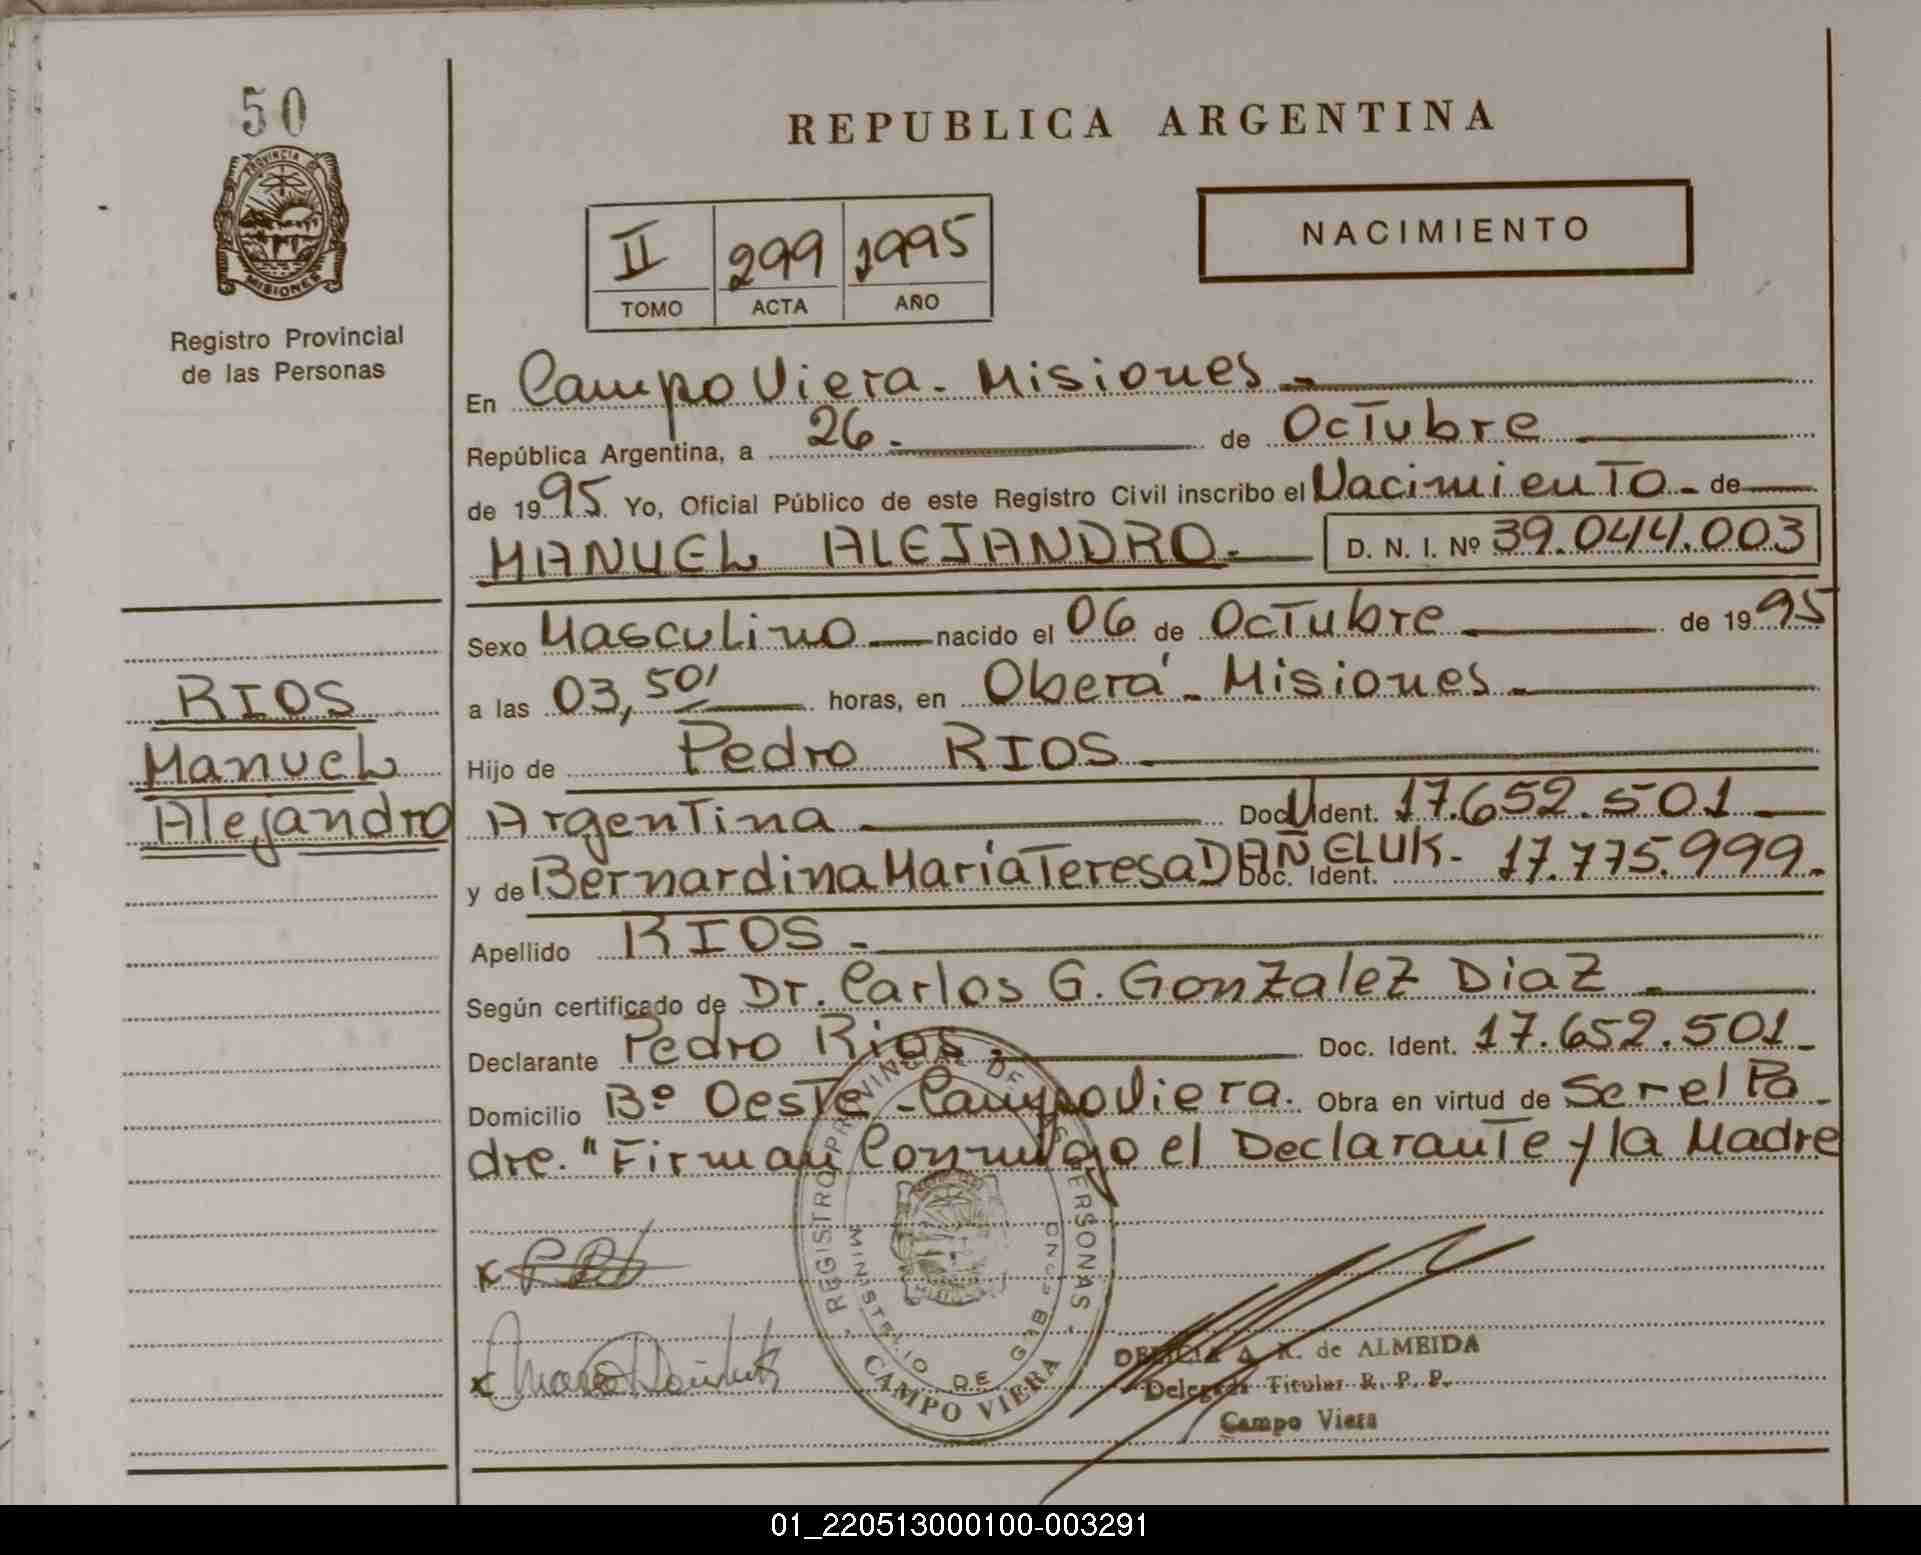 50
PROVINCIA DE
MISIONES
Registro Provincial
de las Personas
REPUBLICA ARGENTINA
II 299 1995
TOMO ACTA AÑO
NACIMIENTO
En Campo Viera - Misiones -
República Argentina, a 26 - de Octubre
de 1995 Yo, Oficial Público de este Registro Civil inscribo el Nacimiento - de
MANUEL ALEJANDRO - D. N. I. Nº 39.044.003
Sexo Masculino nacido el 06 de Octubre de 1995
a las 03,50' horas, en Oberá - Misiones -
RIOS
Manuel
Alejandro
Hijo de Pedro RIOS
Argentina Doc. Ident. 17.652.501
y de Bernardina María Teresa DAÑELUK - Doc. Ident. 17.775.999.
Apellido RIOS -
Según certificado de Dr. Carlos G. GonZaleZ DiaZ -
Declarante Pedro Rios - Doc. Ident. 17.652.501 -
Domicilio Bº Oeste - Campo Viera. Obra en virtud de Ser el Pa-
dre. "Firman Conmigo el Declarante y la Madre
REGISTRO PROVINCIAL DE LAS PERSONAS
MINISTERIO DE GAB
CAMPO VIERA
x
x
DELICIA A. R. de ALMEIDA
Delegada Titular R. P. P.
Campo Viera
01_220513000100-003291